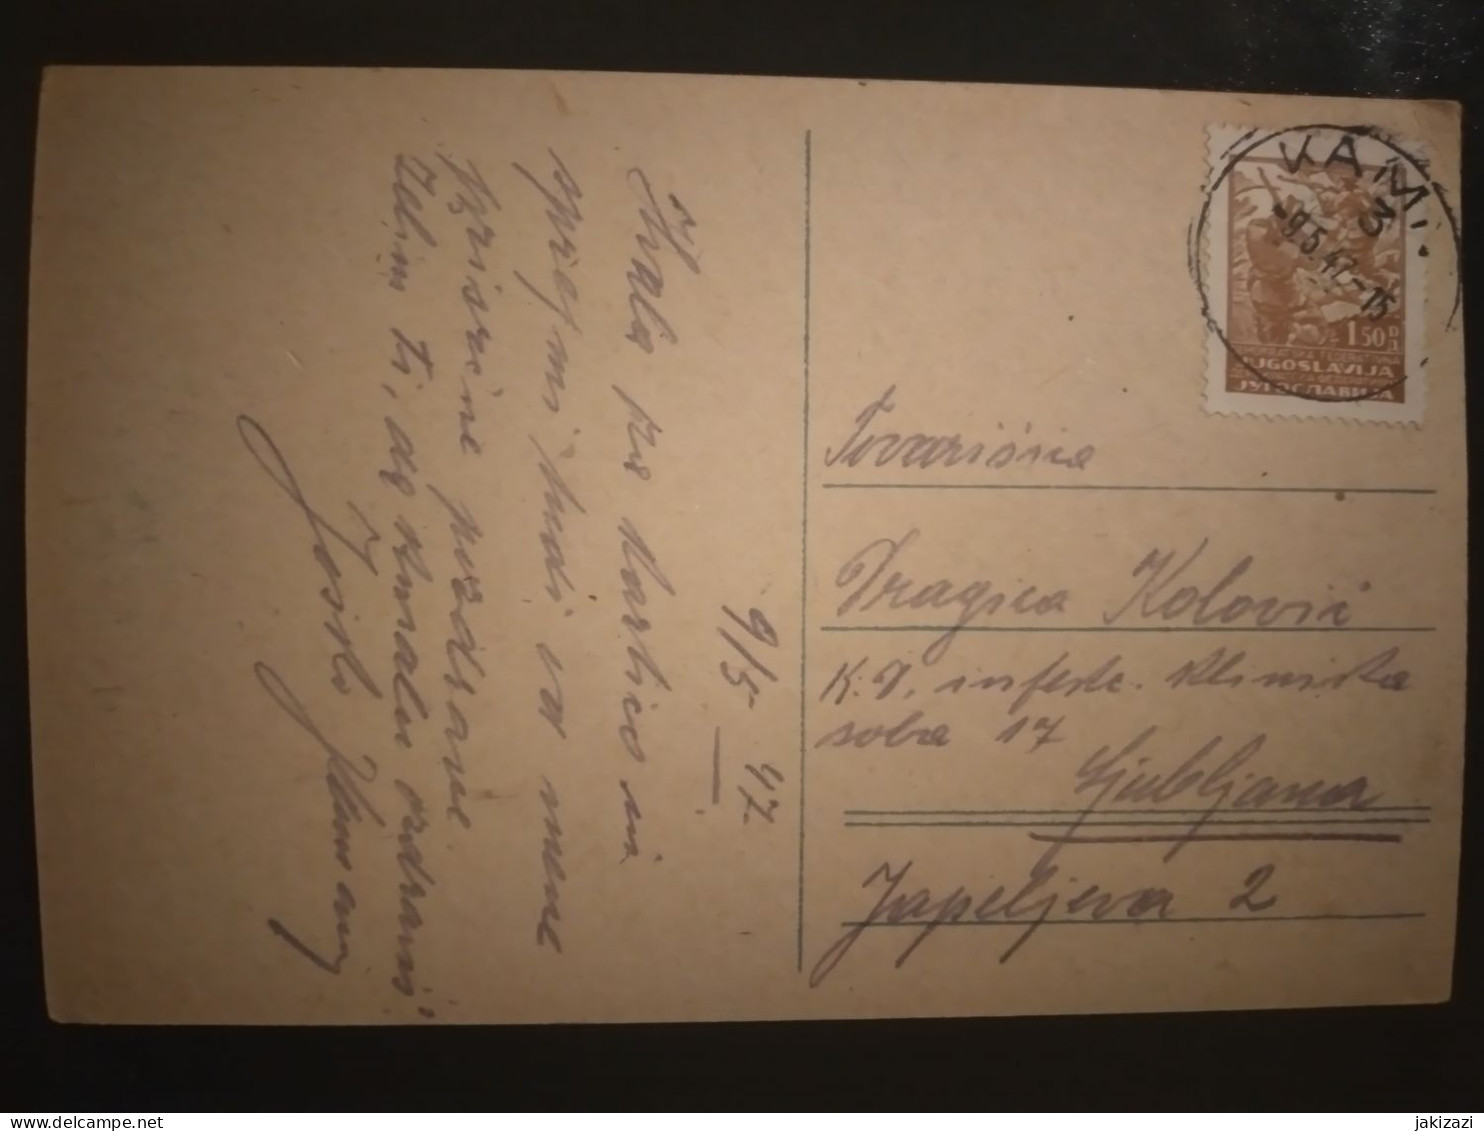 9/5 47.
Hvala pa kartico in
sprejmi tudi od mene
prisrčne pozdrave
Želim ti, da kmalu ozdraviš
Joško
KAM
3
-9.5.47-15
1.50
JUGOSLAVIJA
ЈУГОСЛАВИЈА
Tovarišica
Dragica Kolović
K.O. infekc. klinika
soba 17
Ljubljana
Japeljeva 2
delcampe.net
jakizazi